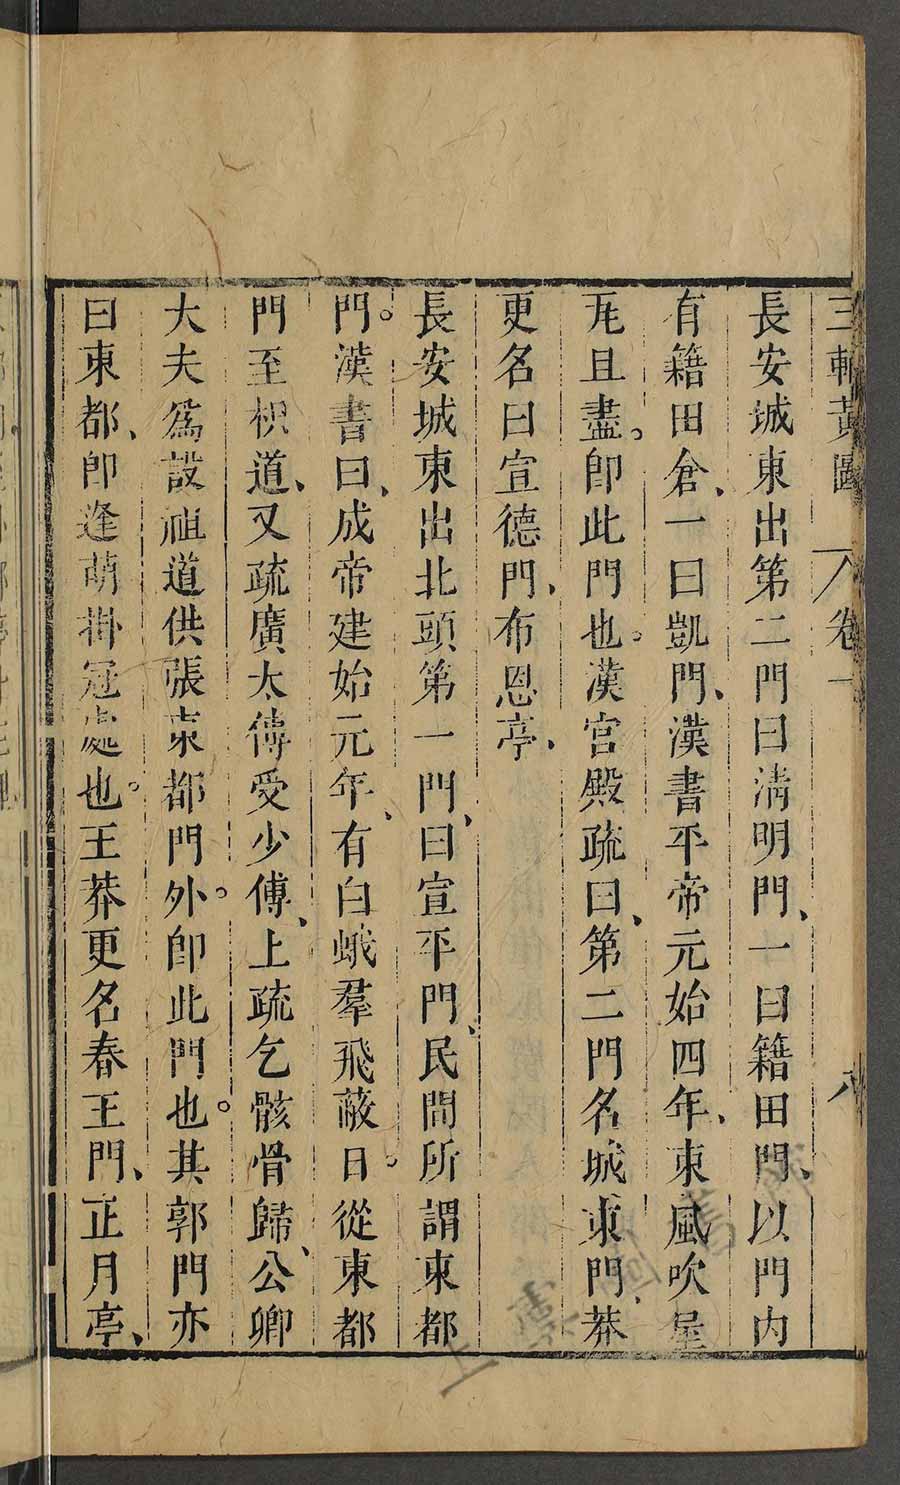 三輔黃圖 卷一 八
長安城東出第二門曰淸明門、一曰籍田門、以門內
有籍田倉、一曰凱門、漢書平帝元始四年、東風吹屋
瓦且盡。卽此門也。漢宮殿疏曰、第二門名城東門、莽
更名曰宣德門、布恩亭、
長安城東出北頭第一門、曰宣平門、民間所謂東都
門。漢書曰、成帝建始元年、有白蛾羣飛蔽日。從東都
門至枳道、又疏廣太傅受少傅、上疏乞骸骨歸、公卿
大夫爲設祖道供張東都門外。卽此門也。其郭門亦
曰東都、卽逢萌掛冠處也。王莽更名春王門、正月亭、